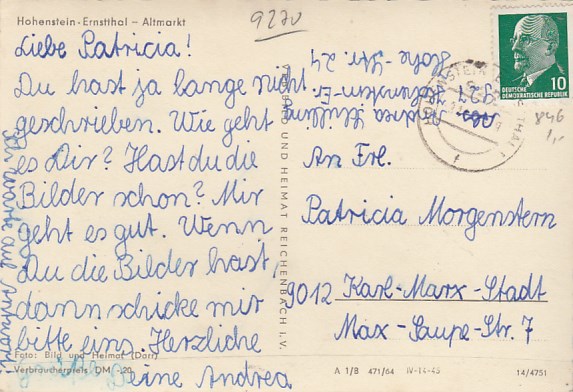 Hohenstein-Ernstthal – Altmarkt
9270
Liebe Patricia!
Du hast ja lange nicht
geschrieben. Wie geht
es Dir? Hast du die
Bilder schon? Mir
geht es gut. Wenn
Du die Bilder hast,
dann schicke mir
bitte eins. Herzliche
Deine Andrea
Ich warte auf Antwort.
Foto: Bild und Heimat (Dorr)
Verbraucherpreis DM -,20
UND HEIMAT REICHENBACH I. V.
Hohenstein-Er.
Str. 24
DEUTSCHE
DEMOKRATISCHE REPUBLIK
10
846
1,-
An Frl.
Patricia Morgenstern
9012 Karl-Marx-Stadt
Max-Saupe-Str. 7
A 1/B 471/64 IV-14-45
14/4751